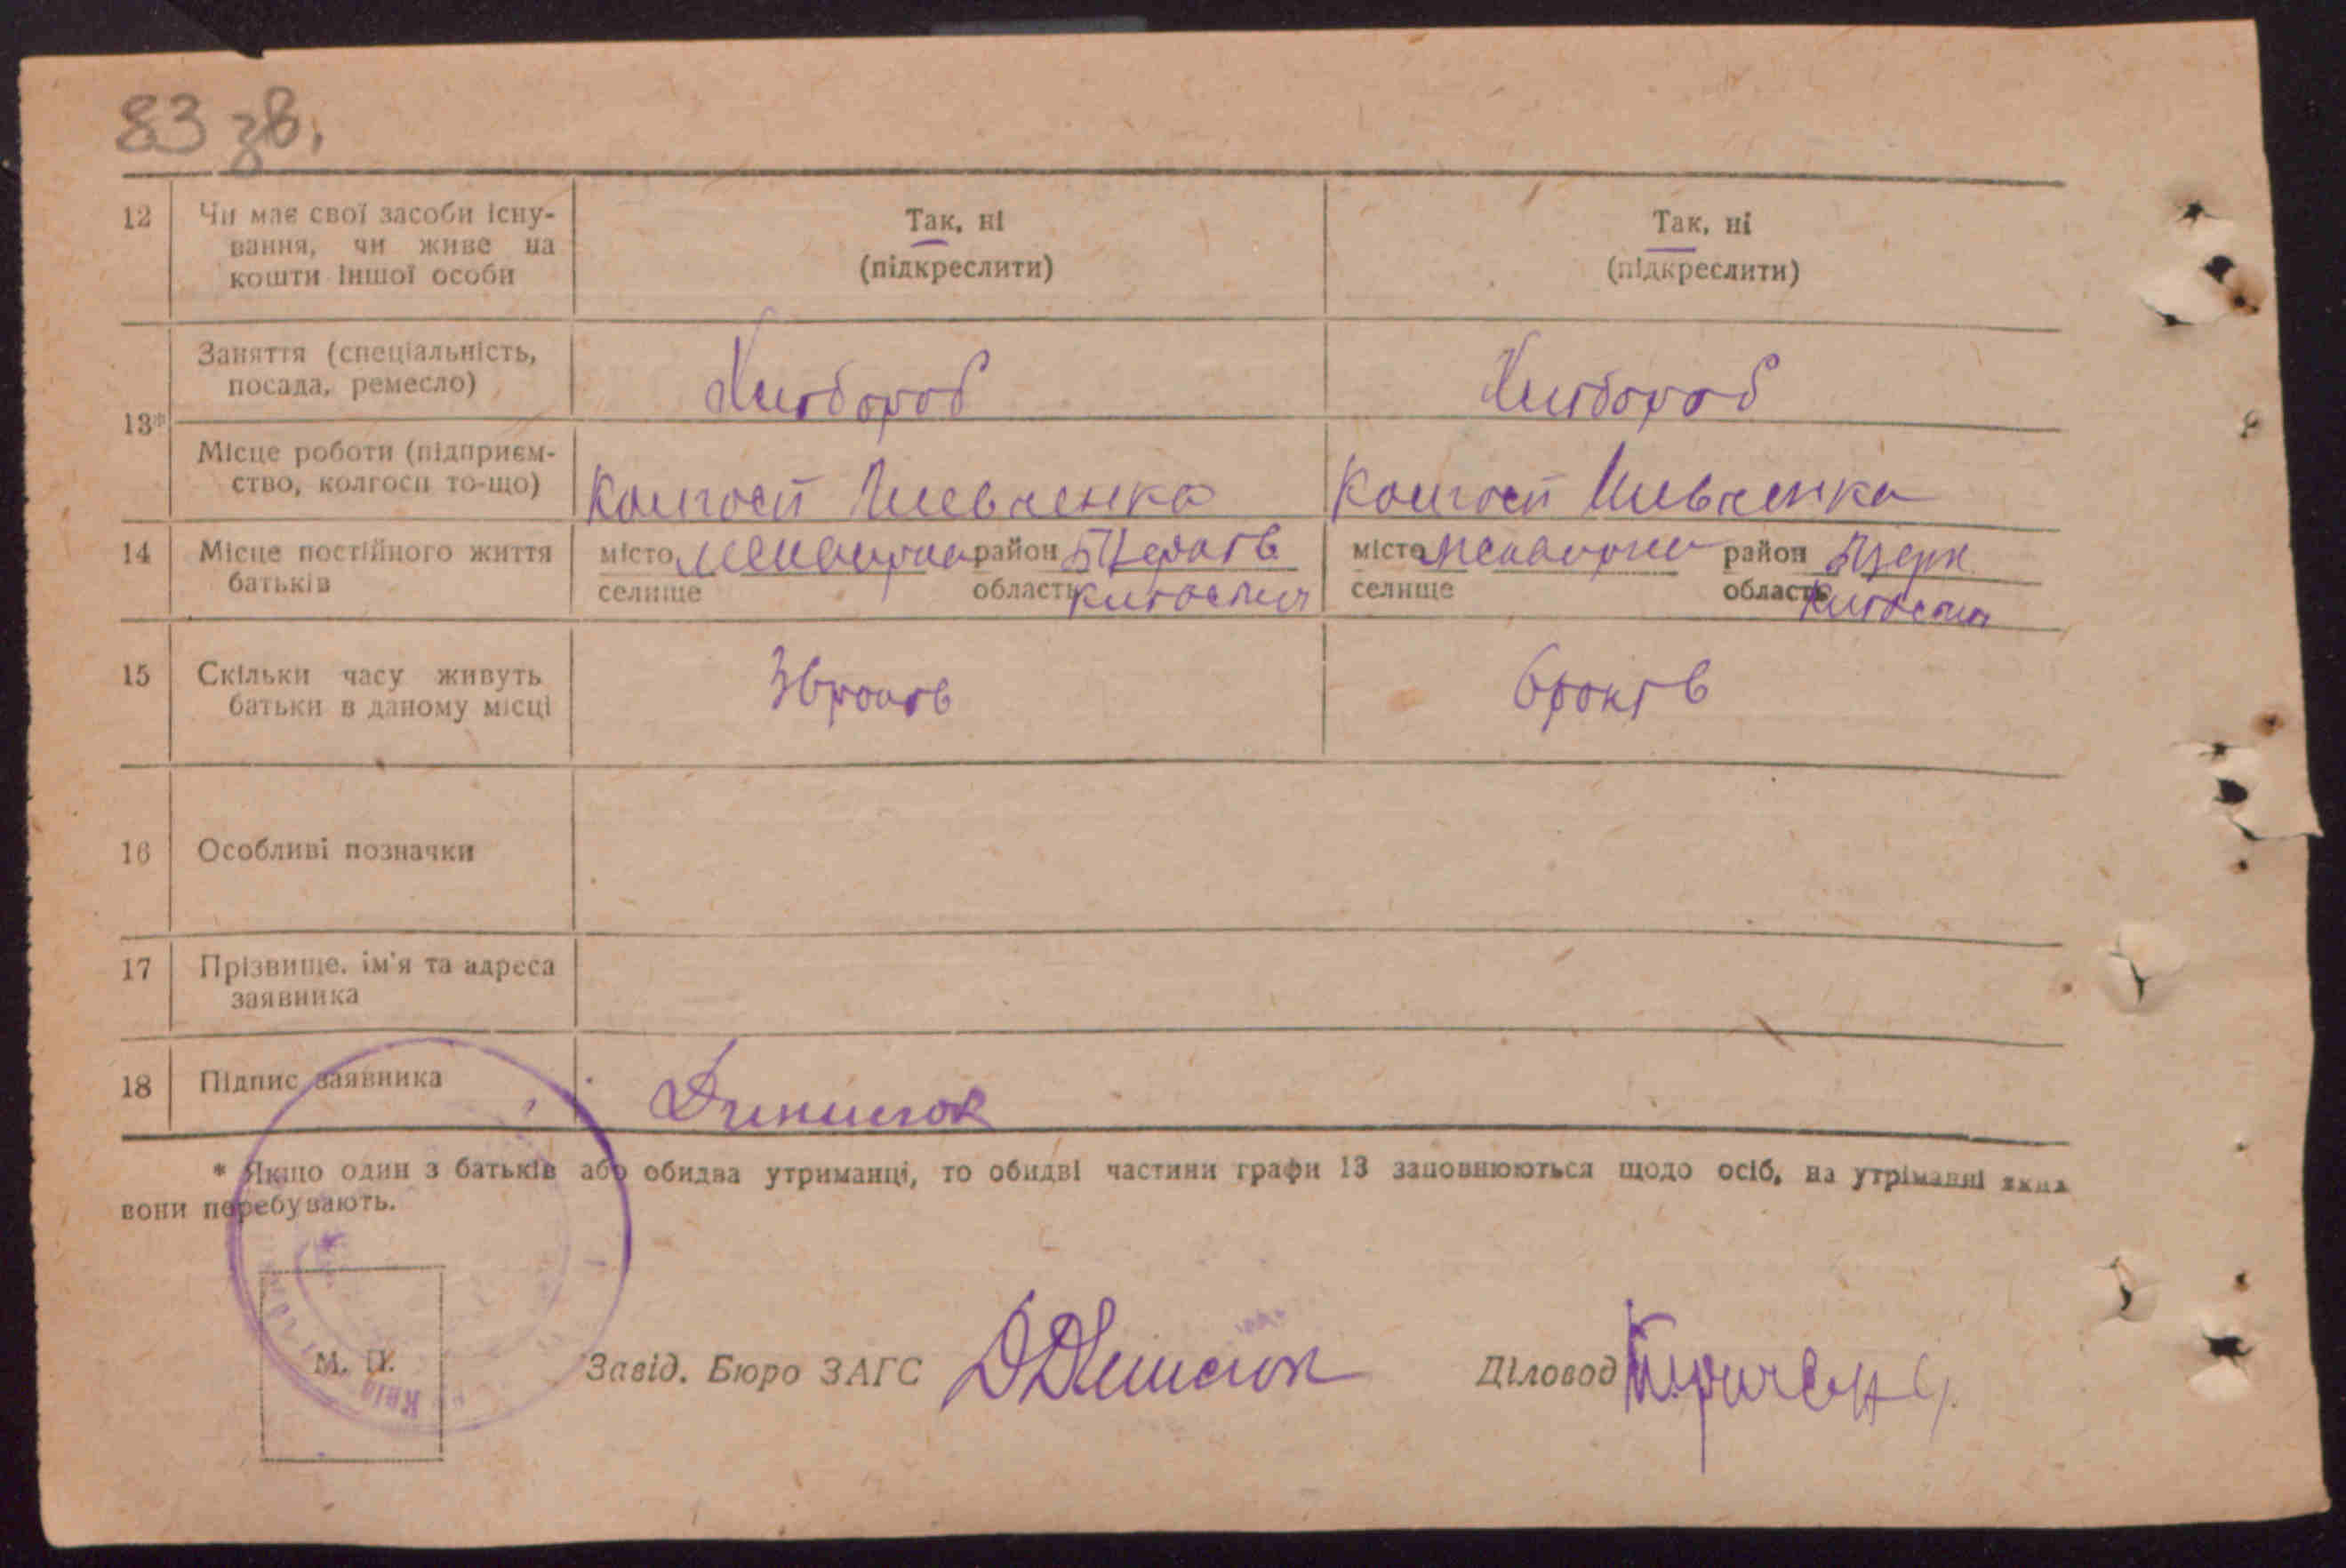 83 зв.
12 Чи має свої засоби існу- Так, ні Так, ні
вання, чи живе на
кошти іншої особи (підкреслити) (підкреслити)
Заняття (спеціальність,
посада, ремесло) Хлібороб Хлібороб
13*
Місце роботи (підприєм-
ство, колгосп то-що) Колгосп Шевченка Колгосп Шевченка
14 Місце постійного життя місто район БЦерків місто район БЦерк
батьків селище область Київська селище область Київська
15 Скільки часу живуть 36 років 6 років
батьки в даному місці
16 Особливі позначки
17 Прізвище, ім'я та адреса
заявника
18 Підпис заявника
* Якщо один з батьків або обидва утриманці, то обидві частини графи 13 заповнюються щодо осіб, на утріманні яких
вони перебувають.
М. П. Завід. Бюро ЗАГС Діловод